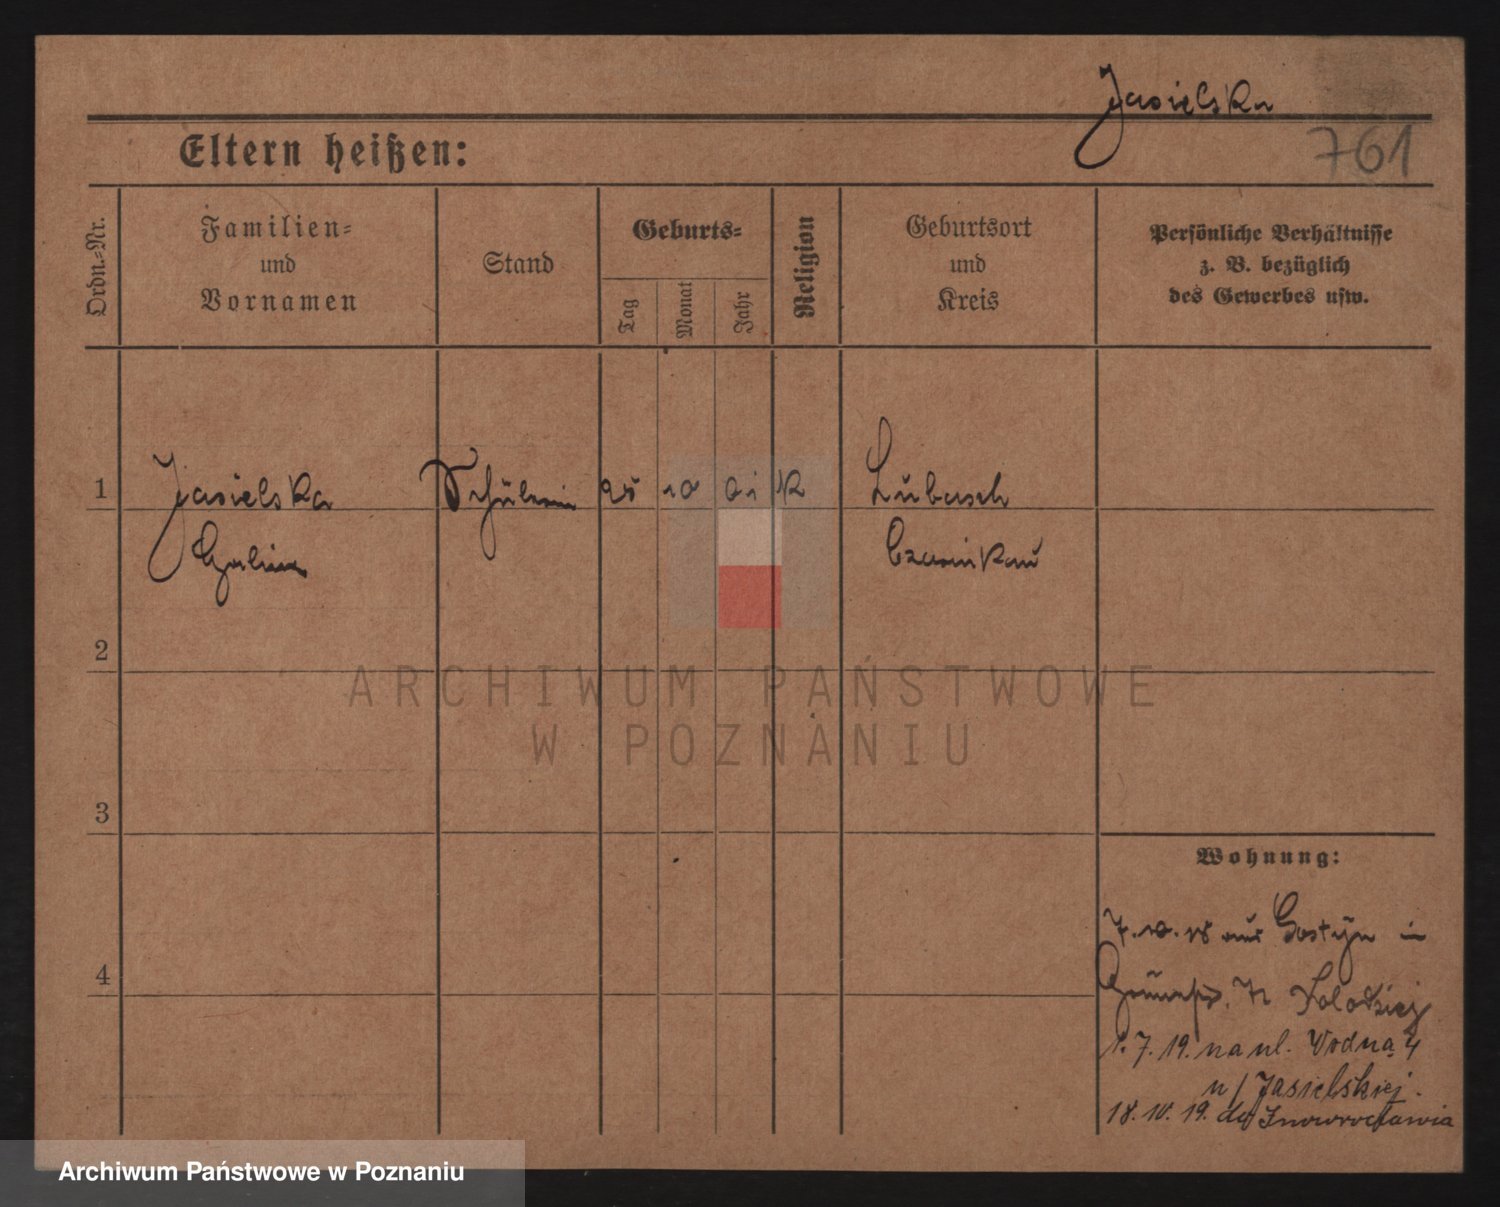 Jasielska
761
Eltern heißen:
Ordn.-Nr.
Familien-
und
Vornamen
Stand
Geburts-
Tag
Monat
Jahr
Religion
Geburtsort
und
Kreis
Persönliche Verhältnisse
z. B. bezüglich
des Gewerbes usw.
1 Jasielska Schülerin 25 10 01 K Lubasch
Halina Czarnikau
2
3
4
Wohnung:
7. 10. 18 aus Gostyn in
1. 7. 19. na ul. Wodna 4
u/ Jasielskiej.
18. IV. 19. do Inowrocławia
ARCHIWUM PAŃSTWOWE
W POZNANIU
Archiwum Państwowe w Poznaniu